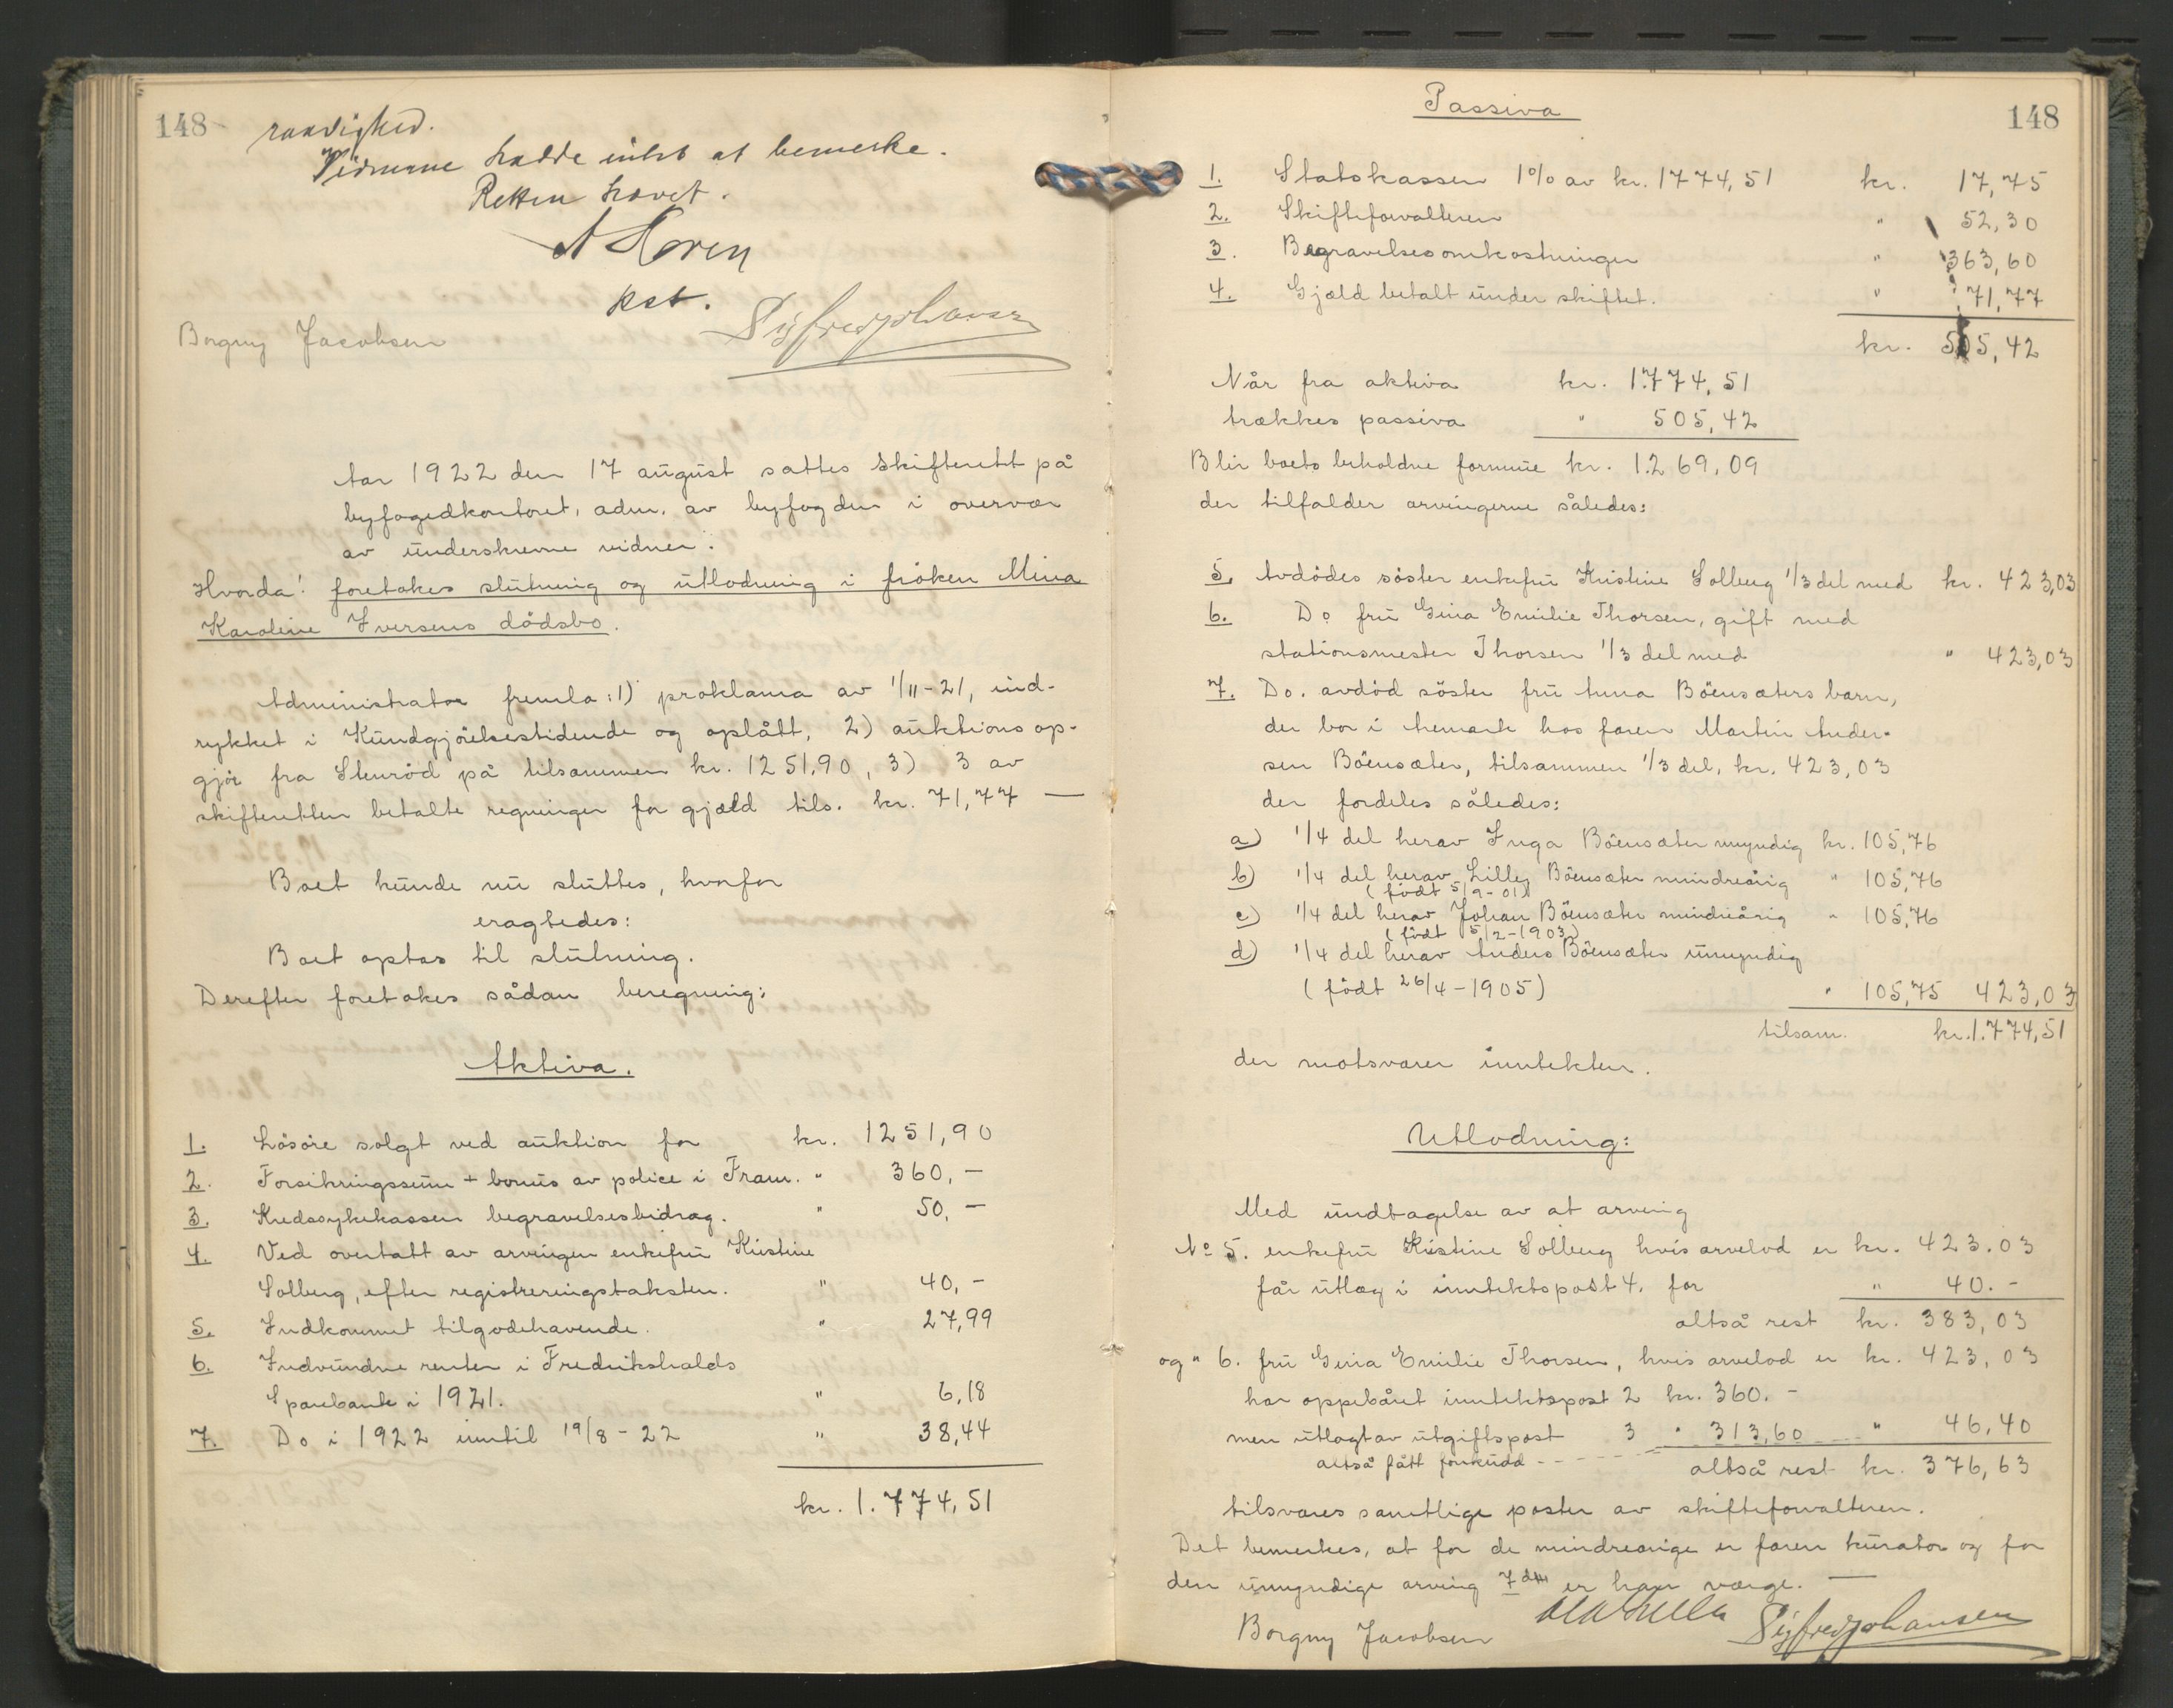 148
raadighed.
Vidnerne hadde intet at bemerke.
Retten hævet.
A Horen
kst.
Borgny Jacobsen
Sigfred Johansen
Aar 1922 den 17 august sattes skifterett på
byfogedkontoret, adm. av byfogden i overvær
av underskrevne vidner:
Hvorda! foretokes slutning og utlodning i fröken Mina
Karoline Iversens dödsbo.
Administrator fremla: 1) proklama av 1/11-21, ind-
rykket i Kundgjörelsestidende og oplått, 2) auktionsop-
gjör fra Stenröd på tilsammen kr. 1251,90, 3) 3 av
skifteretten betalte regninger for gjæld tils. kr. 71,77 —
Boet kunde nu sluttes, hvorfor
eragtedes:
Boet optas til slutning.
Derefter foretokes sådan beregning:
Aktiva.
1. Lösöre solgt ved auktion for kr. 1251,90
2. Forsikringssum + bonus av police i Fram. " 360,-
3. Kredssykekassen begravelsesbidrag. " 50,-
4. Ved overtatt av arvingen enkefru Kristine
Solberg, efter registreringstaksten. " 40,-
5. Indkommet tilgodehavende. " 27,99
6. Indvundne renter i Fredrikshalds
Sparebank i 1921. " 6,18
7. Do i 1922 inntil 19/8-22 " 38,44
kr. 1.774,51
Passiva
148
1. Statskassen 1% av kr. 1774,51 kr. 17,75
2. Skifteforvalteren " 52,30
3. Begravelsesomkostninger " 363,60
4. Gjæld betalt under skiftet. " 71,77
kr. 505,42
Når fra aktiva kr. 1.774,51
trækkes passiva " 505,42
Blir boets beholdne formue kr. 1.269,09
der tilfalder arvingerne således:
5. Avdödes söster enkefru Kristine Solberg 1/3 del med kr. 423,03
6. Do fru Gina Emilie Thorsen, gift med
stationsmester Thorsen 1/3 del med " 423,03
7. Do. avdöd söster fru Anna Böensæters barn,
der bor i Aremark hos faren Martin Ander-
sen Böensæter, tilsammen 1/3 del, kr. 423,03
der fordeles således:
a) 1/4 del herav Inga Böensæter myndig kr. 105,76
b) 1/4 del herav Lilly Böensæter mindreårig " 105,76
(född 5/9-01)
c) 1/4 del herav Johan Böensæter mindreårig " 105,76
(född 5/2-1903)
d) 1/4 del herav Anders Böensæter umyndig
(född 26/4-1905) " 105,75 423,03
tilsam. kr. 1.774,51
der motsvarer inntekten.
Utlodning:
Med undtagelse av at arving
No 5. enkefru Kristine Solberg hvis arvelod er kr. 423.03
får utlæg i inntektspost 4. for " 40.-
altså rest kr. 383,03
og " 6. fru Gina Emilie Thorsen, hvis arvelod er kr. 423,03
har oppebåret inntektspost 2 kr. 360.-
men utlagt av utgiftspost 3 " 313,60 " 46,40
altså fått forskudd - - - - altså rest kr. 376,63
tilsvares samtlige poster av skifteforvalteren.
Det bemerkes, at for de mindreårige er faren kurator og for
den umyndige arving 7 d er han værge. —
Borgny Jacobsen
Sigfred Johansen